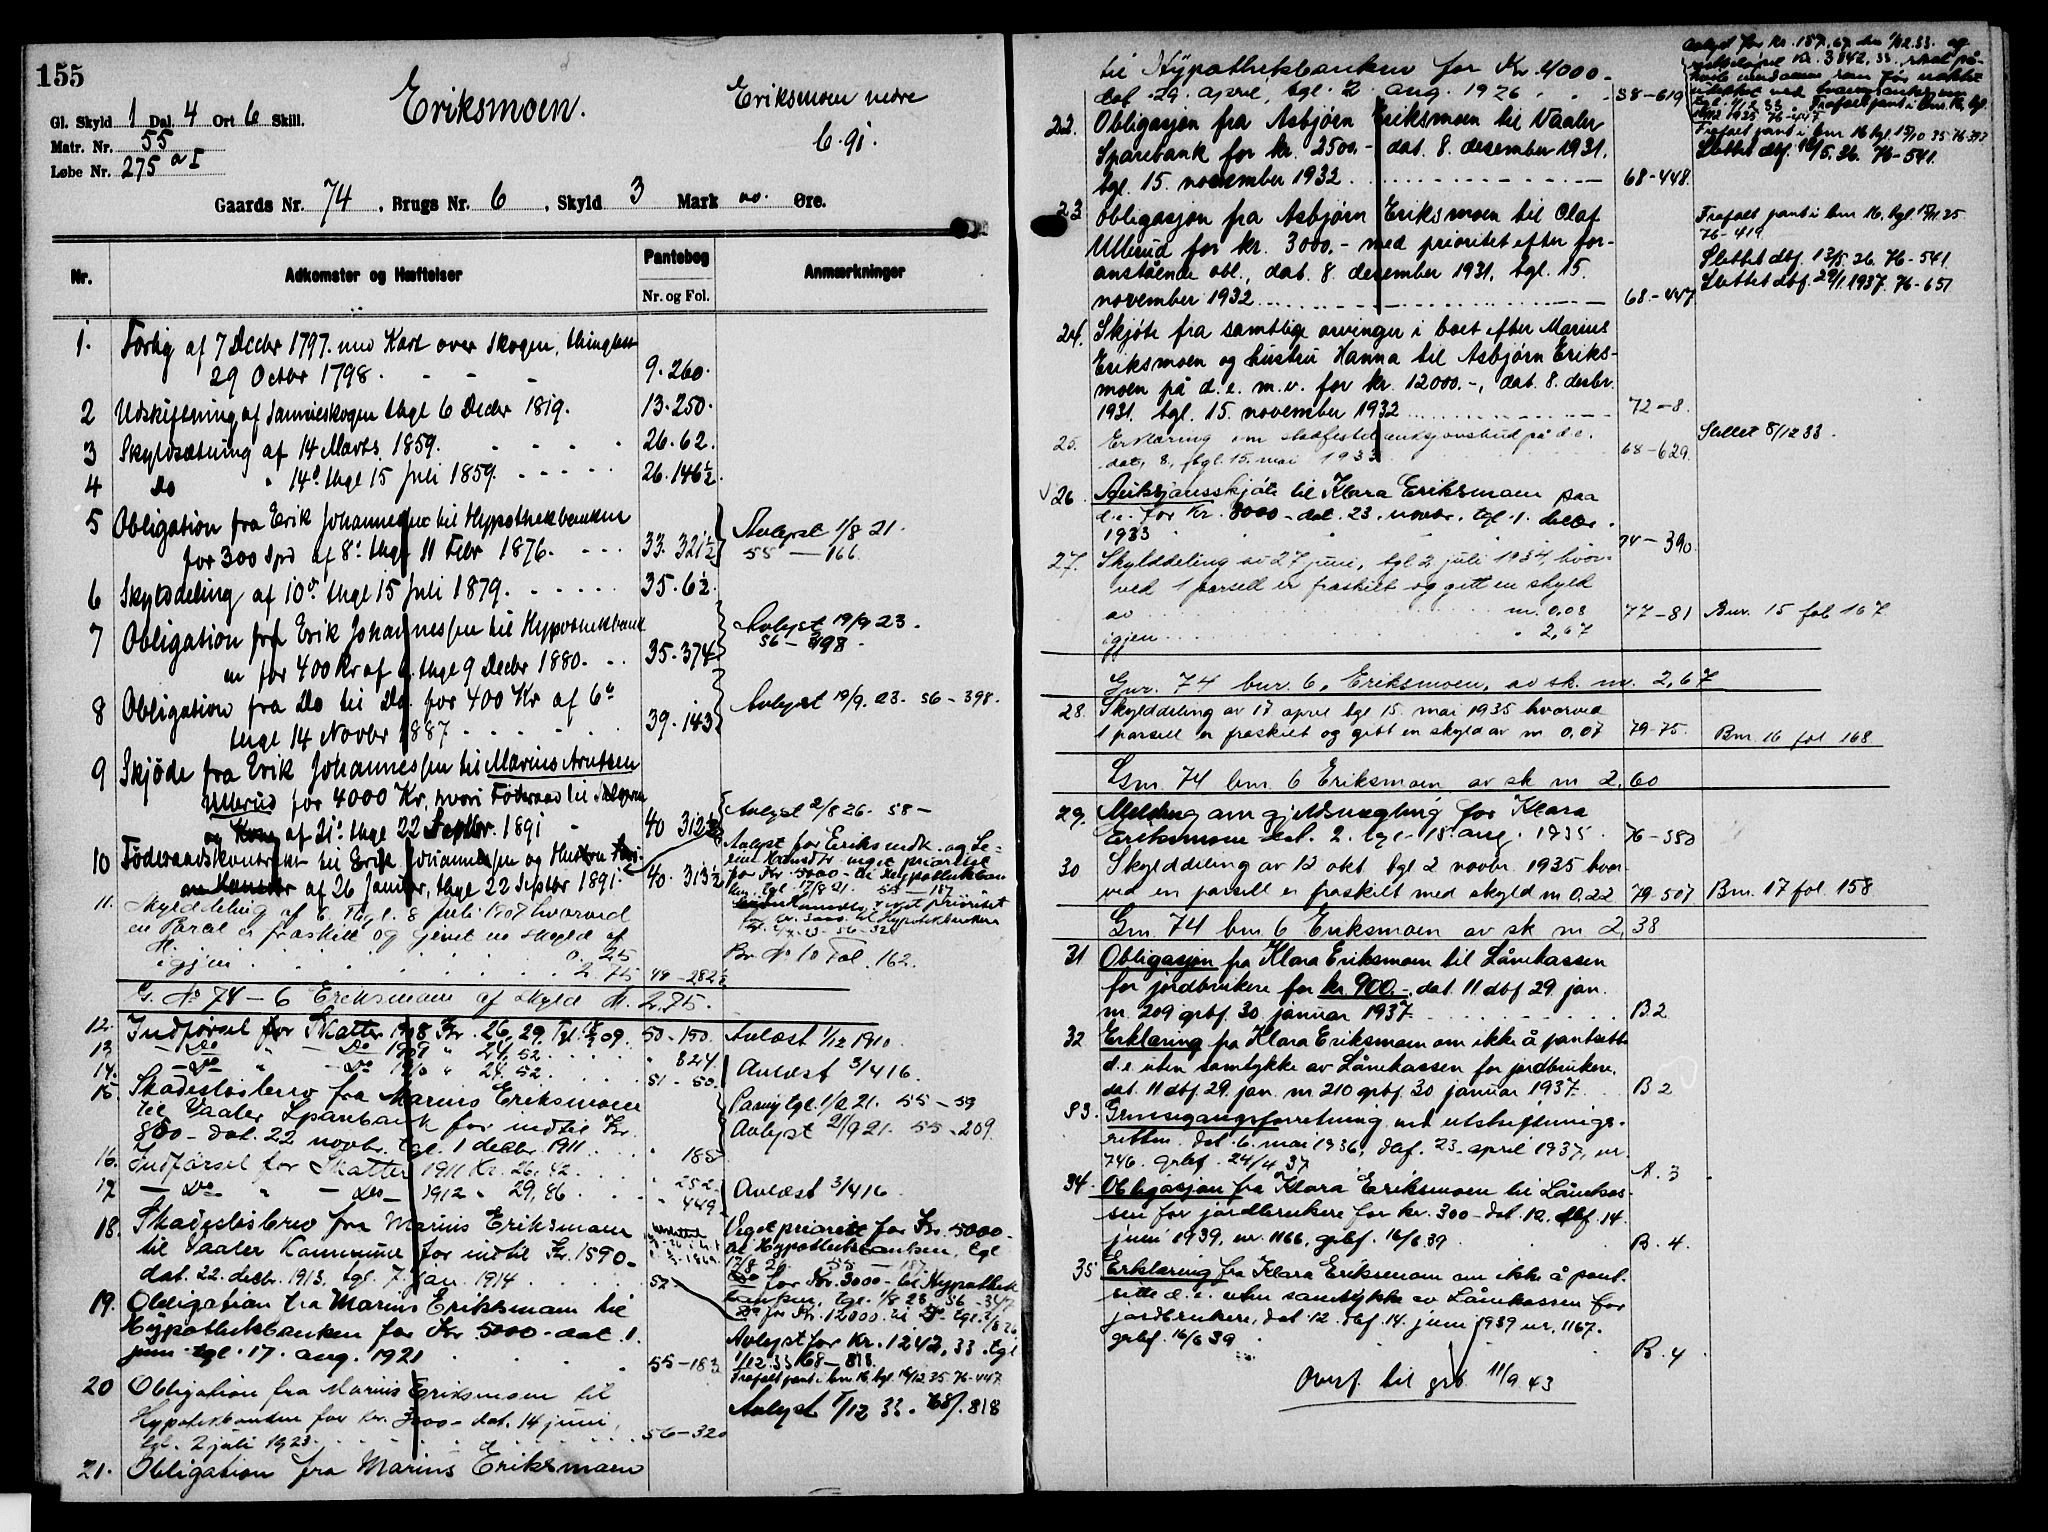 155
Eriksmoen.
Eriksmoen nedre
Gl. Skyld 1 Dal. 4 Ort 6 Skill.
Matr. Nr. 55
Løbe Nr. 275 a I
Gaards Nr. 74, Brugs Nr. 6, Skyld 3 Mark 00. Øre.
Nr. Adkomster og Hæftelser Pantebog Nr. og Fol. Anmærkninger
1. Forlig af 7 Decbr 1797. med Kart over Skogen, thinglæst
29 Octbr 1798. 9. 260.
2 Udskiftning af Sameieskogen thgl 6 Decbr 1819. 13. 250.
3 Skyldsætning af 14 Marts 1859. 26. 62.
4 Do " 14d. thgl 15 Juli 1859. 26. 146½
5 Obligation fra Erik Johannessen til Hypothekbanken
for 300 Spd af 8d. thgl 11 Febr 1876. 33. 321½ Avlyst 1/8 21.
55 — 166
6 Skylddeling af 10d. thgl 15 Juli 1879. 35. 6½
7 Obligation fra Erik Johannessen til Hypothekbank
en for 400 Kr af thgl 9 Decbr 1880. 35. 374 Avlyst 19/9 23.
56 — 398.
8 Obligation fra Do til Do. for 400 Kr af 6d
thgl 14 Novbr 1887 39. 143 Avlyst 19/9. 23. 56 — 398.
9 Skjøde fra Erik Johannessen til Marius Arntsen
Ullerud for 4000 Kr, hvori Föderaad til Sælgeren
og Kone af 21d. thgl 22 Septbr. 1891 40 312½ Avlyst 2/8 26. 58 —
10 Föderaadskontrakt til Erik Johannessen og Hustru
af 26 Januar, thgl 22 Septbr 1891. 40. 313½
11. Skylddeling af 6. Thgl. 8 Juli 1907 hvorved
en Parcel er fraskilt og givet en skyld af
M. 0. 25
igjen 2. 75 49 — 282½ Br. No 10 Fol. 162.
G. No 74 — 6 Eriksmoen af skyld M. 2,75.
12. Indførsel for Skatter 1908 Kr. 26,29, Tgl. 09. 50 — 150. Avlæst 1/12 1910.
13 — Do " — Do 1909 " 24,52 " 824
14. — Do " — Do 1910 " 24. 52 51 — 50. Avlæst 3/4 16.
15. Skadesløsbrev fra Marius Eriksmoen
til Vaaler Sparebank for indtil Kr.
800 — dat. 22 novbr. tgl. 1 decbr. 1911. " 185 Avlyst 21/9 21. 55 — 209.
16. Indførsel for Skatter 1911 Kr. 26, 42. " 252.
17 — Do " — Do — 1912 " 29, 86 " 449. Avlæst 3/4 16.
18. Skadesløsbrev fra Marius Eriksmoen
til Vaaler Kommune for indtil Kr. 1590 —
dat. 22. decbr. 1913, tgl. 7. jan. 1914 52 Veget prioritet for Kr. 5000 —
til Hypothekbanken, tgl
Do for Kr. 3000 — til Hypothek
banken, tgl. 1/8 23 56 — 347
Do for Kr. 12000
19. Obligation fra Marius Eriksmoen til
Hypothekbanken for Kr 5000 — dat. 1.
juni tgl. 17. aug. 1921 55 — 183 Avlyst for Kr. 1242, 33. tgl
1/12. 33 68 — 818.
Frafalt pant i bnr 16 tgl. 14/12 35 76 — 447.
20 Obligation fra Marius Eriksmoen til
Hypothekbanken for Kr. 3000 — dat. 14 juni,
tgl. 2 juli 1923. 56 — 320 Avlyst 1/12 33. 68/. 818
21. Obligation fra Marius Eriksmoen
til Hypothekbanken for Kr. 4000 —
dat. 29. april, tgl. 2. aug. 1926 58 — 619
22. Obligasjon fra Asbjørn Eriksmoen til Vaaler
Sparebank for kr. 2500. — dat. 8. desember 1931.
tgl. 15. november 1932 68 — 448.
Slettet dbf. 13/5. 36. 76 — 541.
23 Obligasjon fra Asbjørn Eriksmoen til Olaf
Ullerud for kr. 3000. — med prioritet efter for-
anstående obl., dat. 8. desember 1931, tgl. 15.
november 1932 68 — 447
Frafalt pant i bnr 16, tgl 35
76 — 419
Slettet dbf. 13/5. 36. 76 — 541.
Slettet dbf. 29/1 1937. 76 — 651
24. Skjøte fra samtlige arvinger i boet efter Marius
Eriksmoen og hustru Hanna til Asbjørn Eriks-
moen på d.e. m.v. for kr. 12000. —, dat. 8. desbr.
1931. tgl. 15. november 1932 72 — 8.
25. Erklæring om auksjonsbud på d.e.
dat, 8, tgl. 15. mai 1933. 68 — 629. Slettet 8/12 33.
26. Auksjonsskjøte til Klara Eriksmoen paa
d.e. for Kr. 8000 — dat. 23. novbr. tgl. 1. decbr.
1933 74 — 390.
27. Skylddeling av 27 juni, tgl 2 juli 1934, hvor
ved 1 parsell er fraskilt og gitt en skyld
av m. 0,08 77 — 81 Bnr. 15 fol 167
igjen " 2,67
Gnr. 74 bnr. 6, Eriksmoen, av sk. m. 2,67
28. Skylddeling av 17 april tgl 15. mai 1935 hvorved
1 parsell er fraskilt og gitt en skyld av m 0,07 79 — 75. Bnr. 16 fol 168
Gnr. 74 bnr. 6 Eriksmoen av sk m 2,60
29. Melding om gjeldsmegling for Klara
Eriksmoen dat. 2. tgl — 15 aug. 1935. 76 — 350
30 Skylddeling av 12 okt. tgl 2 novbr. 1935 hvor-
ved en parsell er fraskilt med skyld m 0,22 79 — 507 Bnr. 17 fol. 158
Gnr 74 bnr. 6 Eriksmoen av sk m 2,38
31 Obligasjon fra Klara Eriksmoen til Lånekassen
for jordbrukere for kr. 900. —, dat. 11. dbf 29. jan.
nr. 209 grbf. 30. januar 1937 B 2
32 Erklæring fra Klara Eriksmoen om ikke å pantsette
d.e. uten samtykke av Lånekassen for jordbrukere,
dat. 11 dbf. 29. jan. nr 210 grbf. 30 januar 1937. B 2
33. Grensegangsforretning ved utskiftnings-
retten. dat. 6. mai 1936, dbf. 23. april 1937, nr.
746. grbf. 24/4 37 A. 3
34. Obligasjon fra Klara Eriksmoen til Lånekas-
sen for jordbrukere for kr. 300 — dat. 12. dbf. 14.
juni 1939, nr. 1166, grbf. 16/6 39 B. 4.
35 Erklæring fra Klara Eriksmoen om ikke å pant-
sette d.e. uten samtykke av Lånekassen for
jordbrukere, dat. 12. dbf. 14. juni 1939 nr. 1167.
grbf. 16/6 39 B. 4
Overf. til grb. 11/9 43